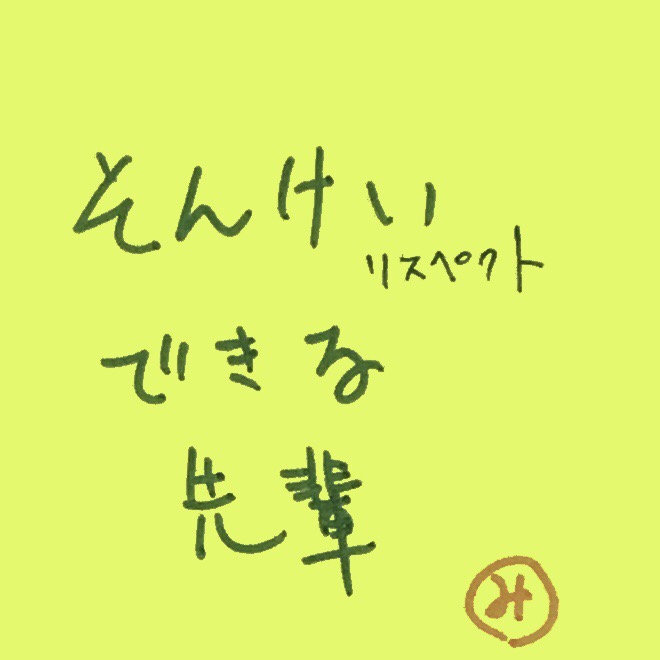 そんけい
リスペクト
できる
先輩
み